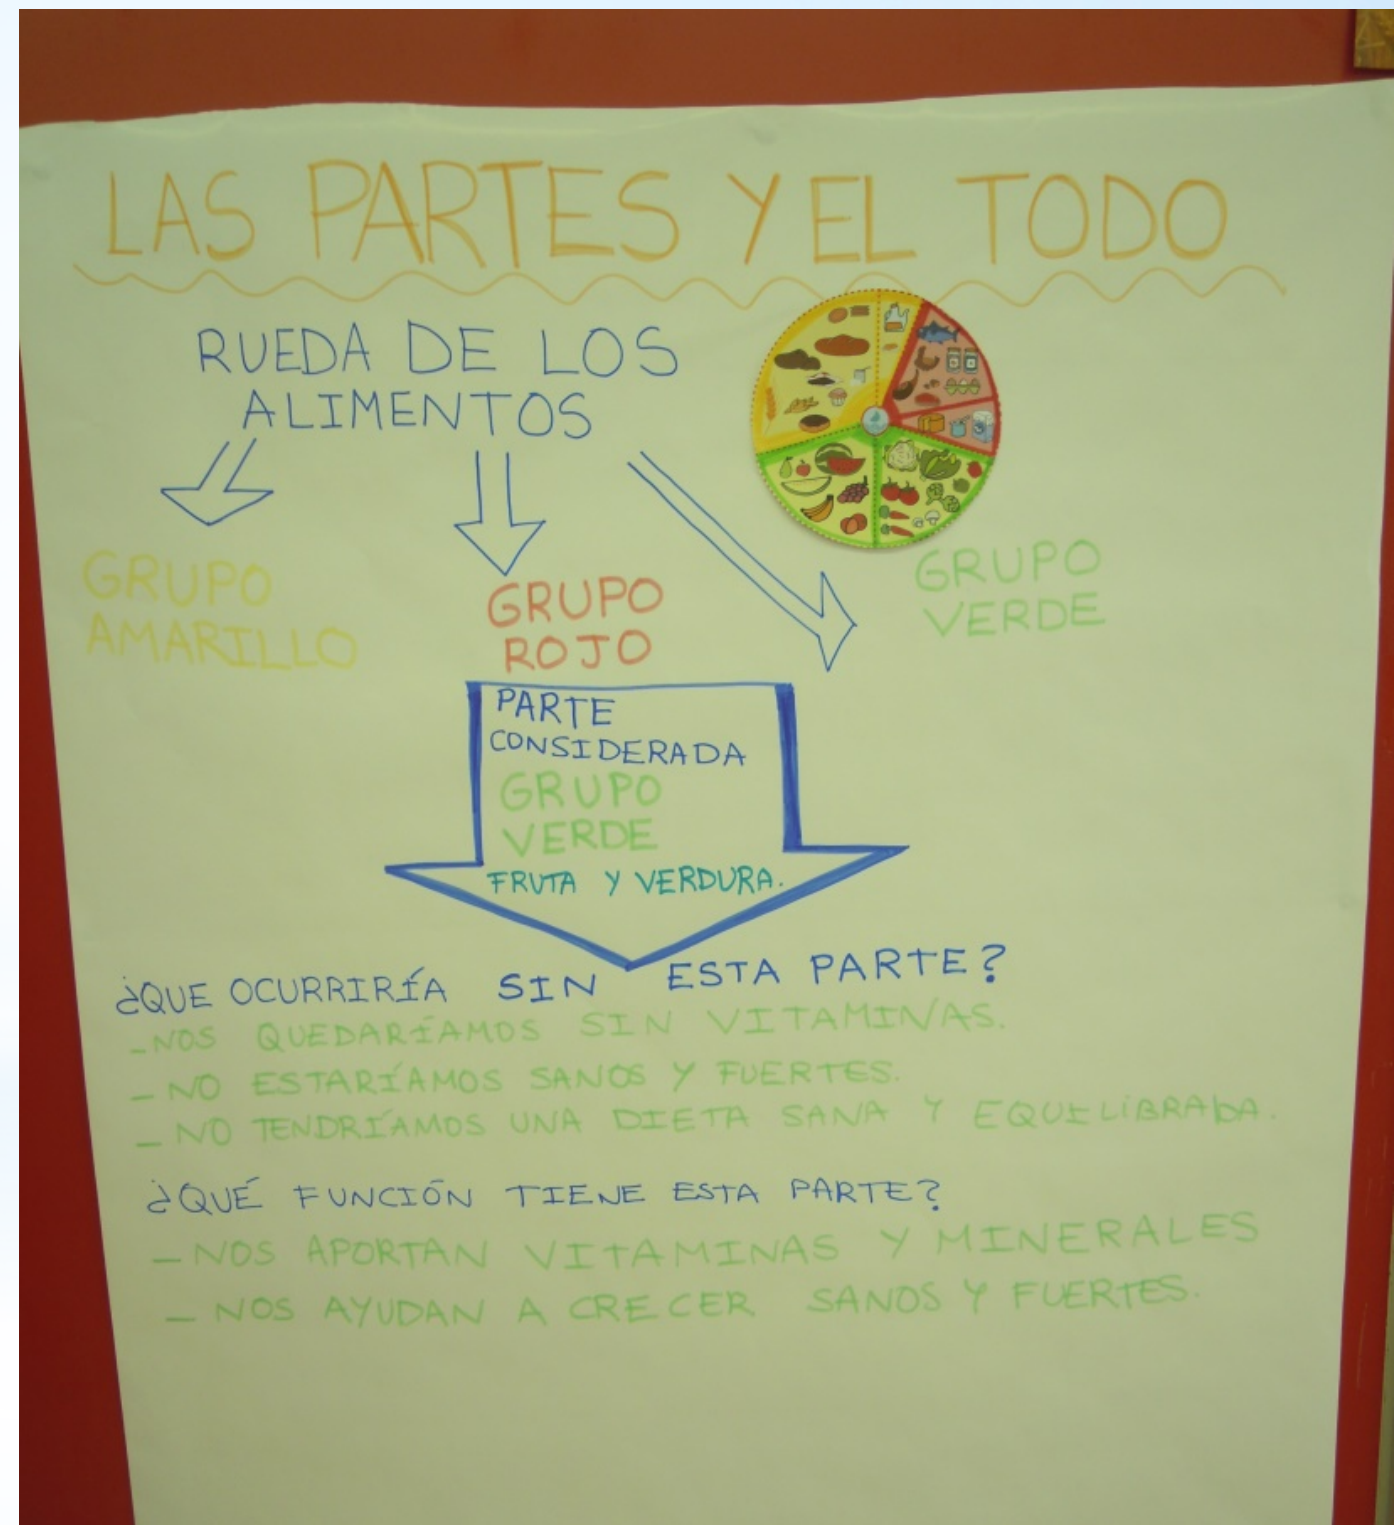 LAS PARTES Y EL TODO
RUEDA DE LOS
ALIMENTOS
GRUPO
AMARILLO
GRUPO
ROJO
GRUPO
VERDE
PARTE
CONSIDERADA
GRUPO
VERDE
FRUTA Y VERDURA.
¿QUE OCURRIRÍA SIN ESTA PARTE?
-NOS QUEDARÍAMOS SIN VITAMINAS.
- NO ESTARÍAMOS SANOS Y FUERTES.
- NO TENDRÍAMOS UNA DIETA SANA Y EQUILiBRADA.
¿QUÉ FUNCIÓN TIENE ESTA PARTE?
- NOS APORTAN VITAMINAS Y MINERALES
- NOS AYUDAN A CRECER SANOS Y FUERTES.